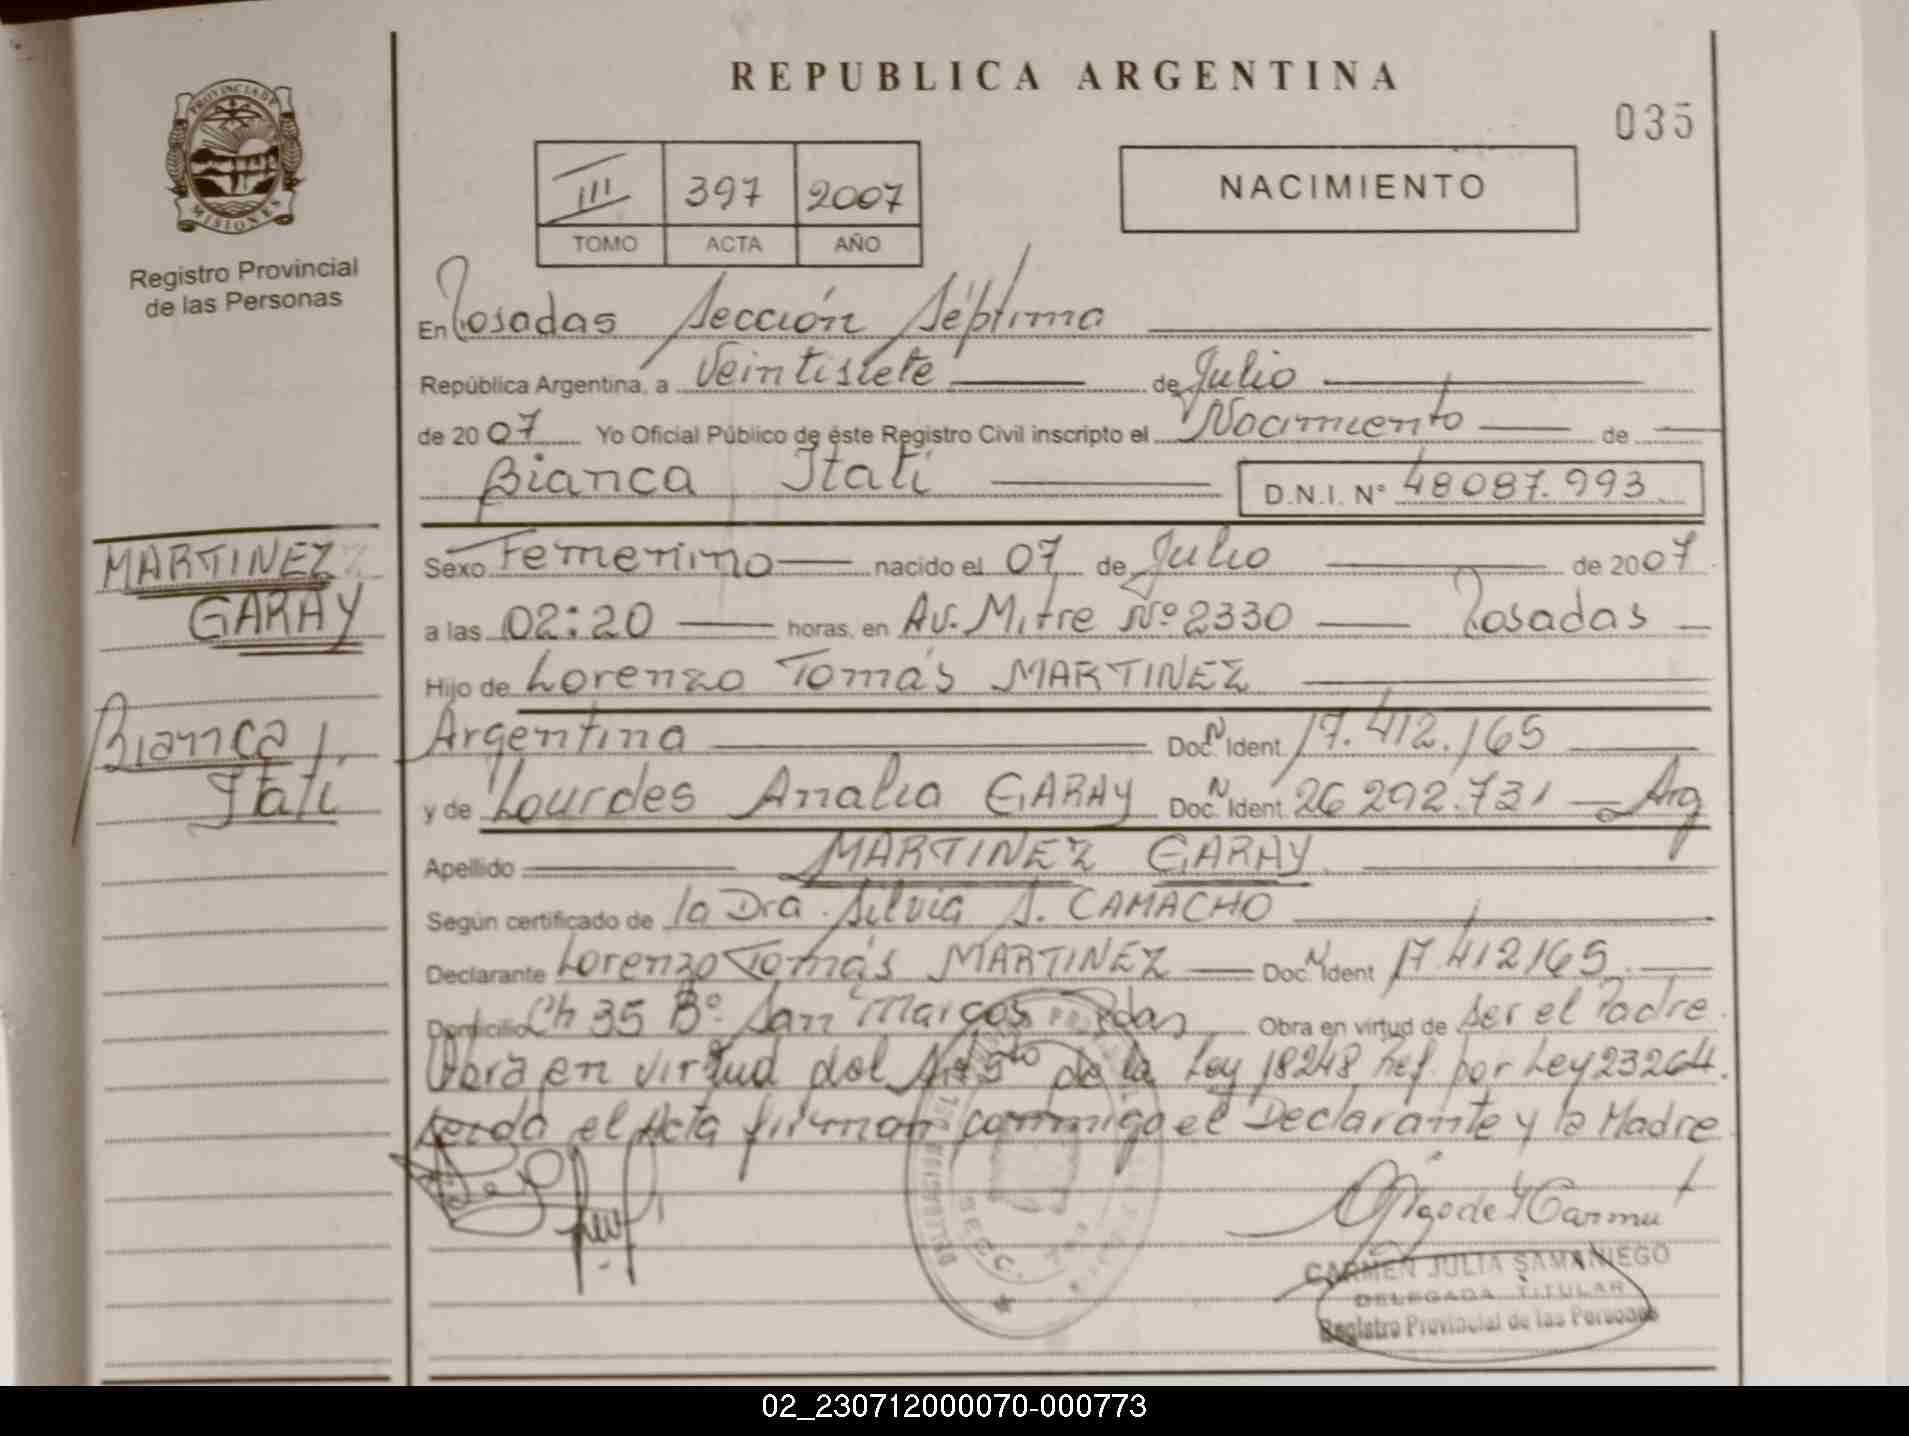 REPUBLICA ARGENTINA
035
PROVINCIA DE
MISIONES
Registro Provincial
de las Personas
III 397 2007
TOMO ACTA AÑO
NACIMIENTO
En Posadas Sección Séptima
República Argentina, a Veintisiete de Julio
de 2007 Yo Oficial Público de éste Registro Civil inscripto el Nacimiento de
Bianca Itatí D.N.I. N° 48087.993
MARTINEZ
GARAY
Bianca
Itatí
Sexo Femenino nacido el 07 de Julio de 2007
a las 02:20 horas, en Av. Mitre Nº 2330 Posadas
Hijo de Lorenzo Tomás MARTINEZ
Argentina Doc. N Ident 17.412.165
y de Lourdes Analia GARAY Doc. N Ident 26 292.731 Arg
Apellido MARTINEZ GARAY
Según certificado de la Dra. Silvia S. CAMACHO
Declarante Lorenzo Tomás MARTINEZ Doc. N Ident 17.412165
Domicilio Ch 35 Bº San Marcos Pdas Obra en virtud de Ser el Padre.
Obra en virtud del Art 5to de la Ley 18248 Ref. por Ley 23264.
Leida el Acta firman conmigo el Declarante y la Madre
CARMEN JULIA SAMANIEGO
DELEGADA TITULAR
Registro Provincial de las Personas
02_230712000070-000773